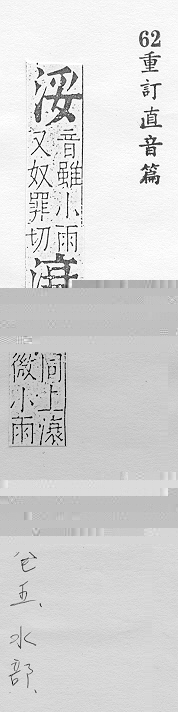 62重訂直音篇
浽
音雖小雨
又奴罪切
同上滖
微小雨
卷五、水部.